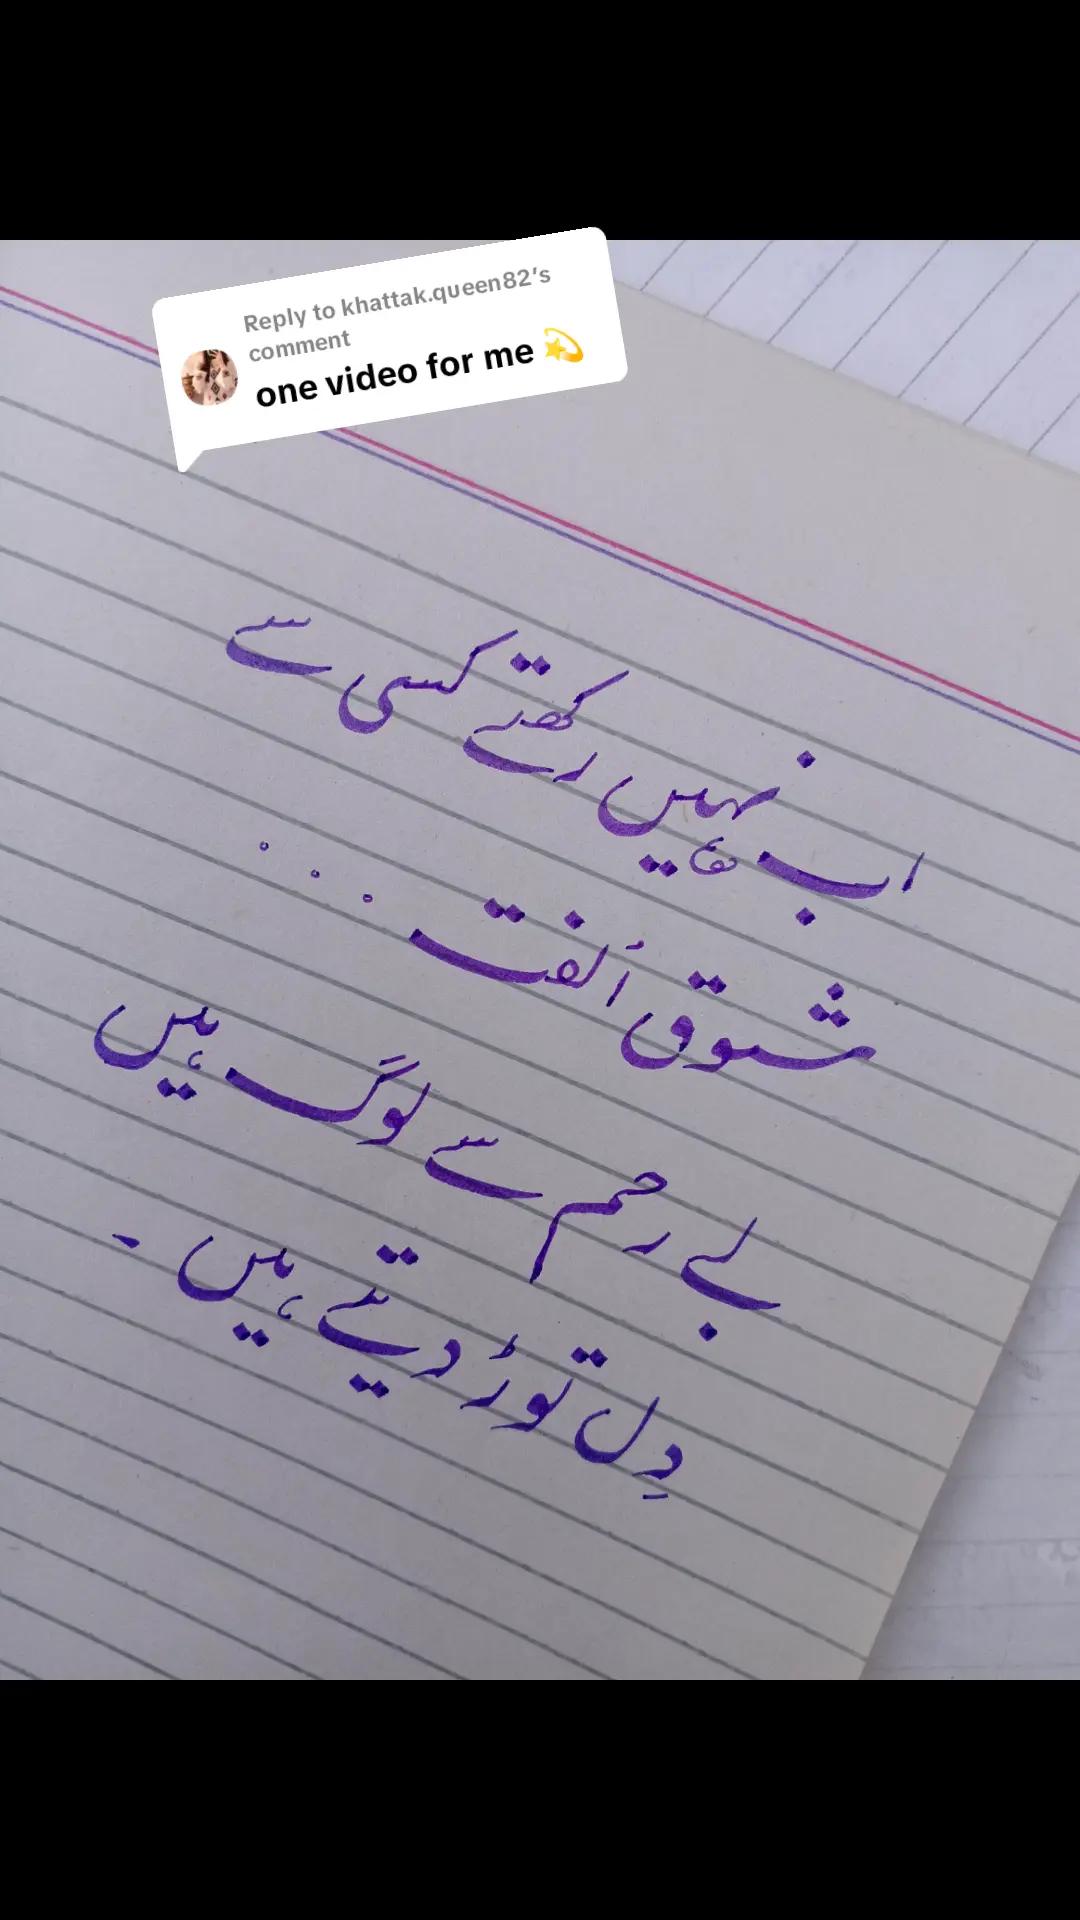 Reply to khattak.queen82's
comment
one video for me 💫
اب نہیں رکھتے کسی سے
شوق اُلفت . . .
بے رحم سے لوگ ہیں
دِل توڑ دیتے ہیں ۔